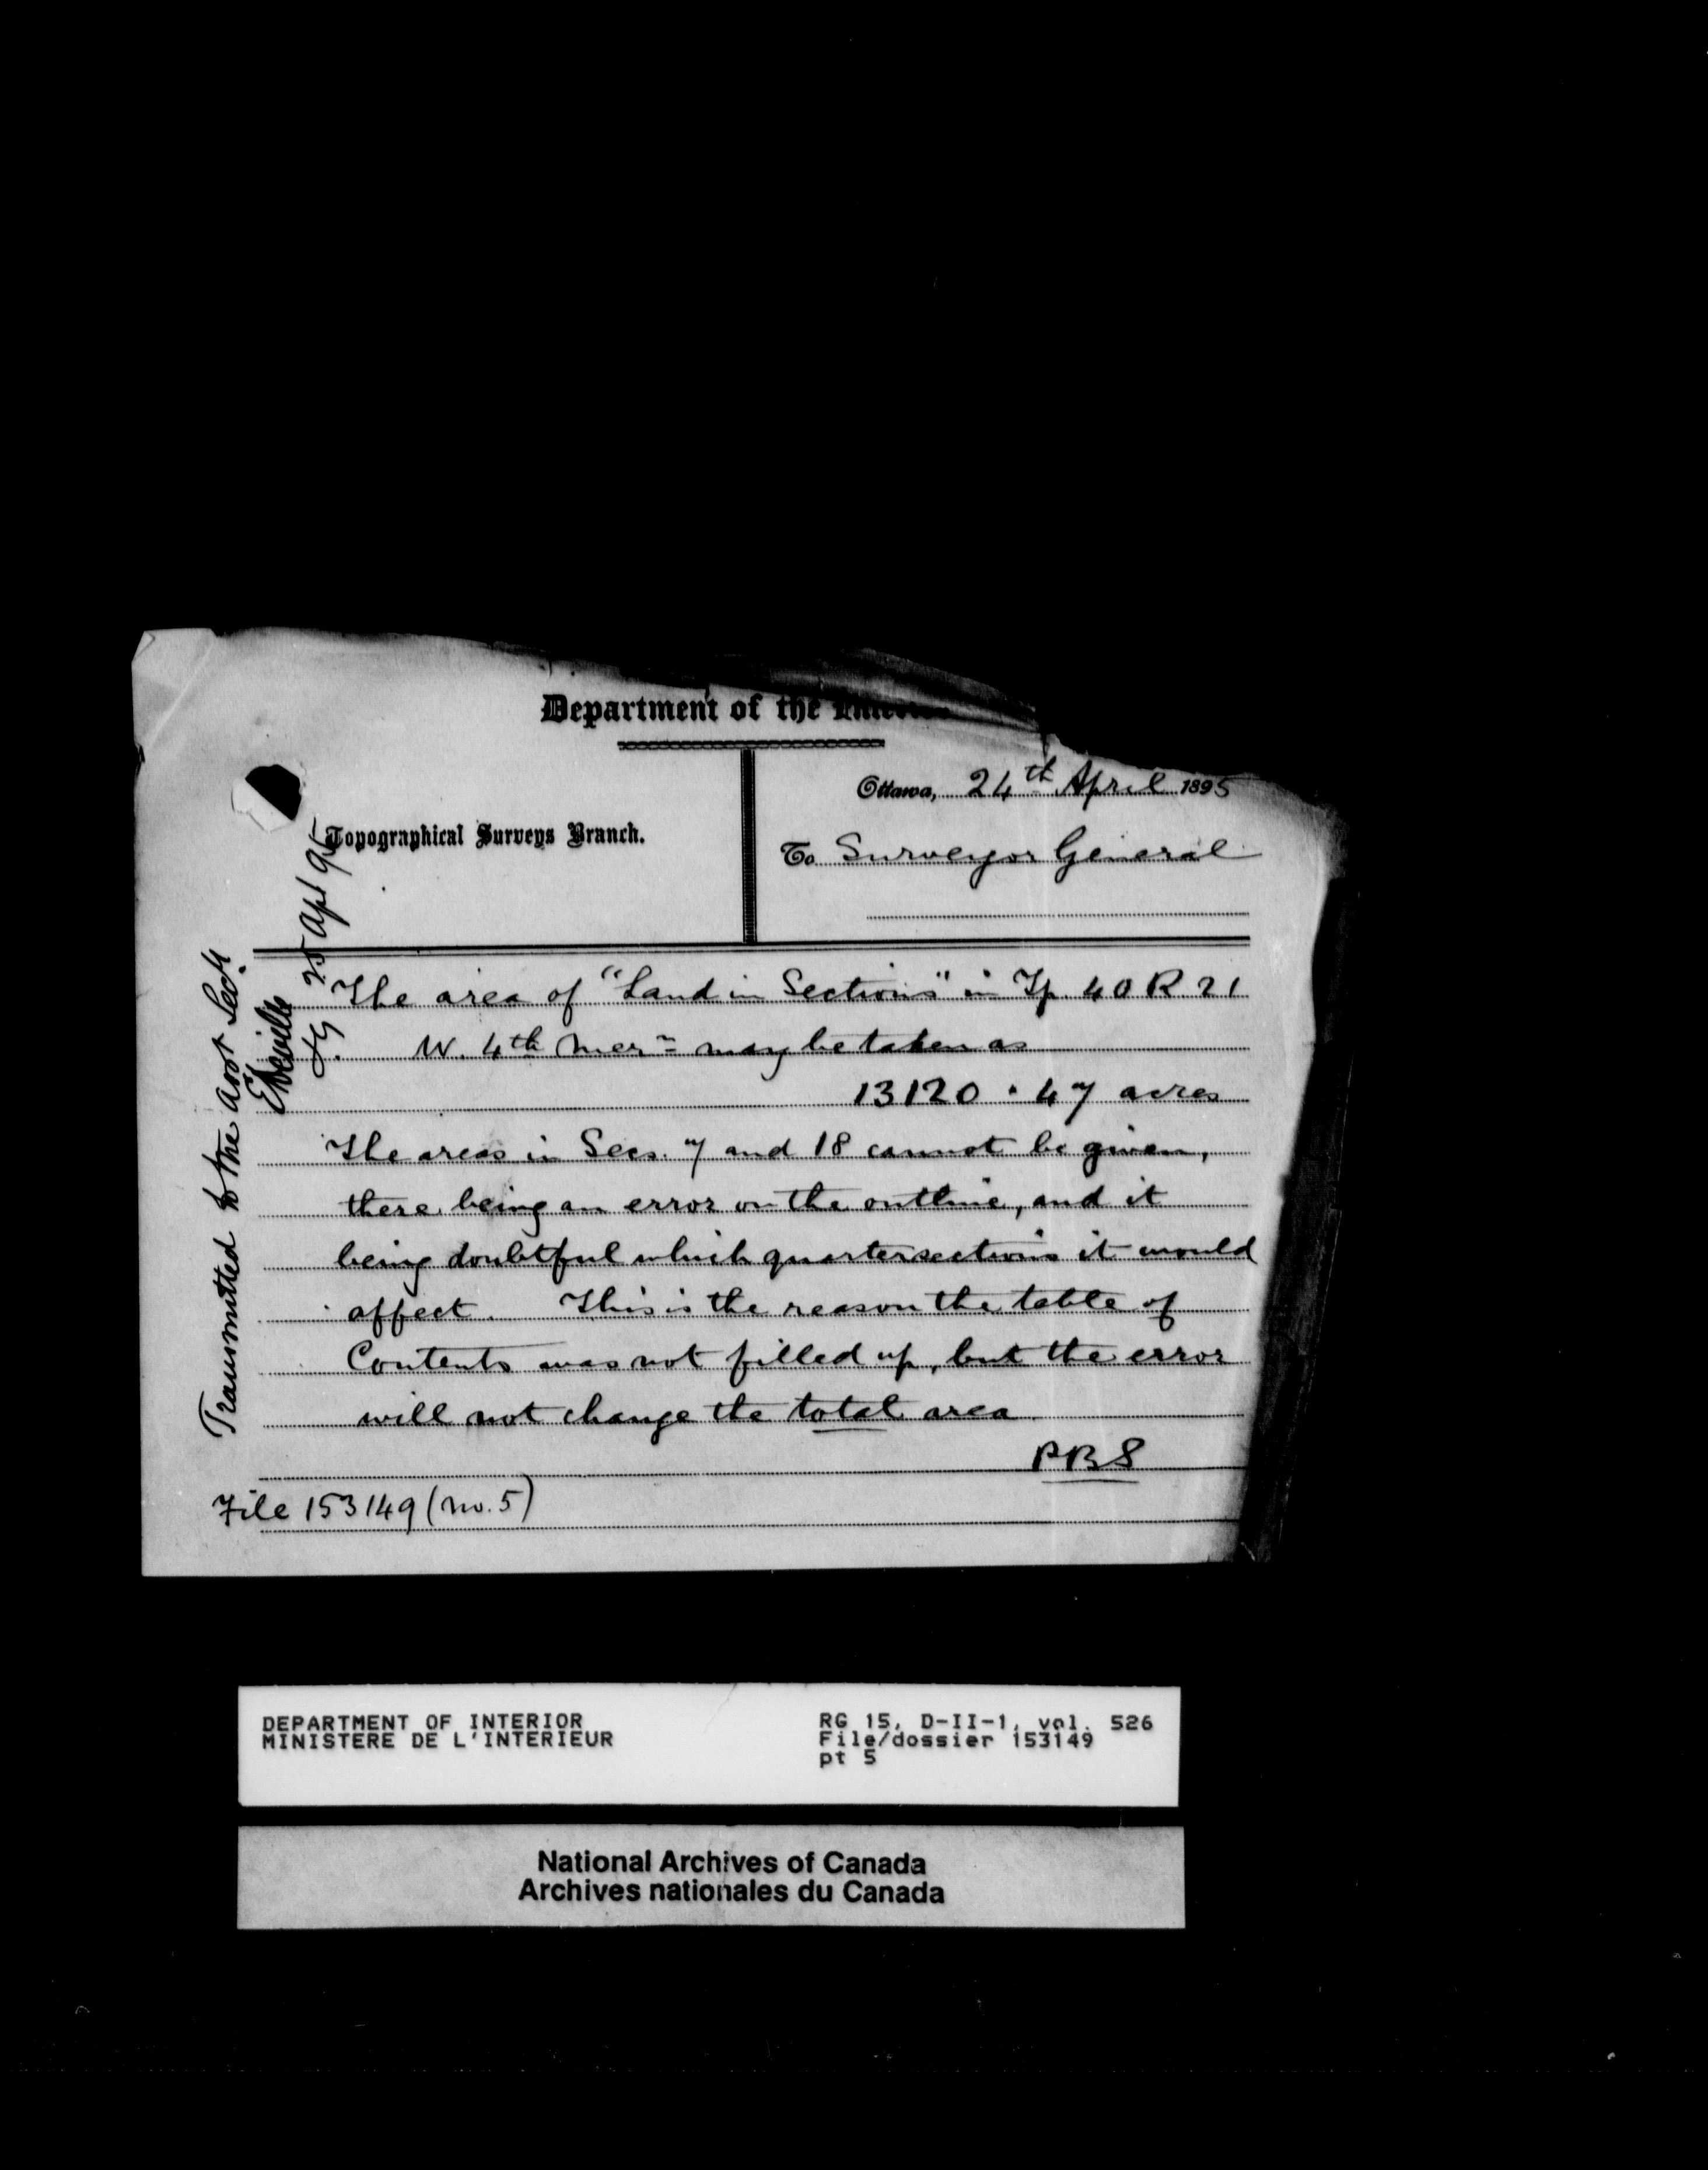 Department of the Interior
Ottawa, 24th April 1895
Topographical Surveys Branch.
To Surveyor General
The area of "Land in Sections" in Tp. 40 R. 21
W. 4th Mern may be taken as
13120 . 47 acres
The areas in Secs. 7 and 18 cannot be given,
there being an error on the outline, and it
being doubtful which quarter sections it would
affect. This is the reason the table of
Contents was not filled up, but the error
will not change the total area
PBS
File 153149 (no. 5)
Transmitted to the asst Secy.
E Deville
SG. 25 Apl 95
DEPARTMENT OF INTERIOR
MINISTERE DE L'INTERIEUR
RG 15, D-II-1, vol. 526
File/dossier 153149
pt 5
National Archives of Canada
Archives nationales du Canada